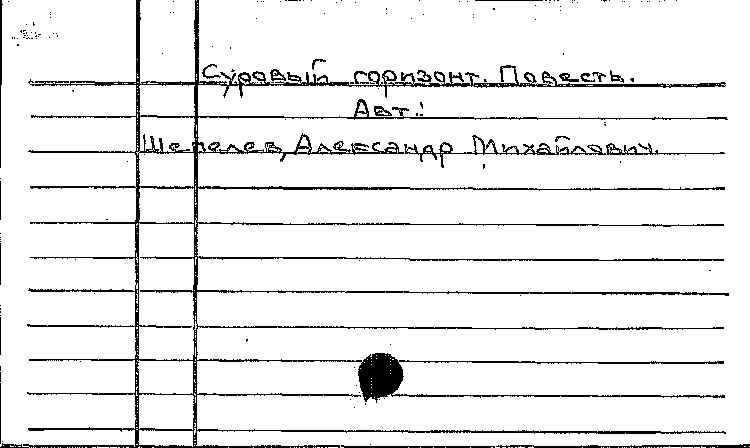 Суровый горизонт. Повесть.
Авт.:
Шепелев, Александр Михайлович.